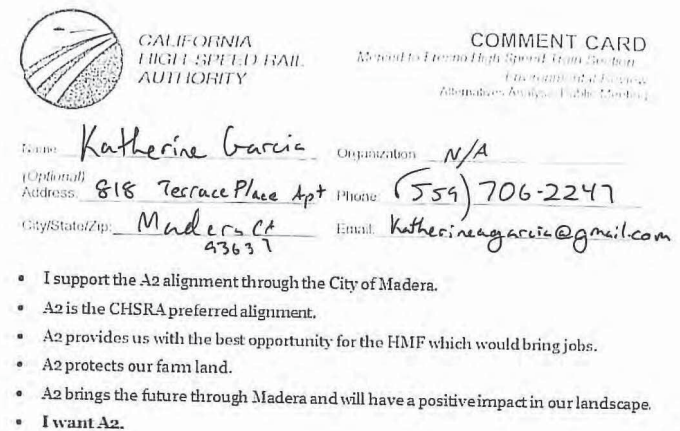 CALIFORNIA
HIGH-SPEED RAIL
AUTHORITY
COMMENT CARD
Merced to Fresno High Speed Train Section
Environmental Review
Alternatives Analysis Public Meeting
Name Katherine Garcia Organization N/A
(Optional)
Address. 818 Terrace Place Apt Phone: (559) 706-2247
City/State/Zip: Madera CA Email: katherineagarcia@gmail.com
93637
• I support the A2 alignment through the City of Madera.
• A2 is the CHSRA preferred alignment.
• A2 provides us with the best opportunity for the HMF which would bring jobs.
• A2 protects our farm land.
• A2 brings the future through Madera and will have a positive impact in our landscape.
• I want A2.